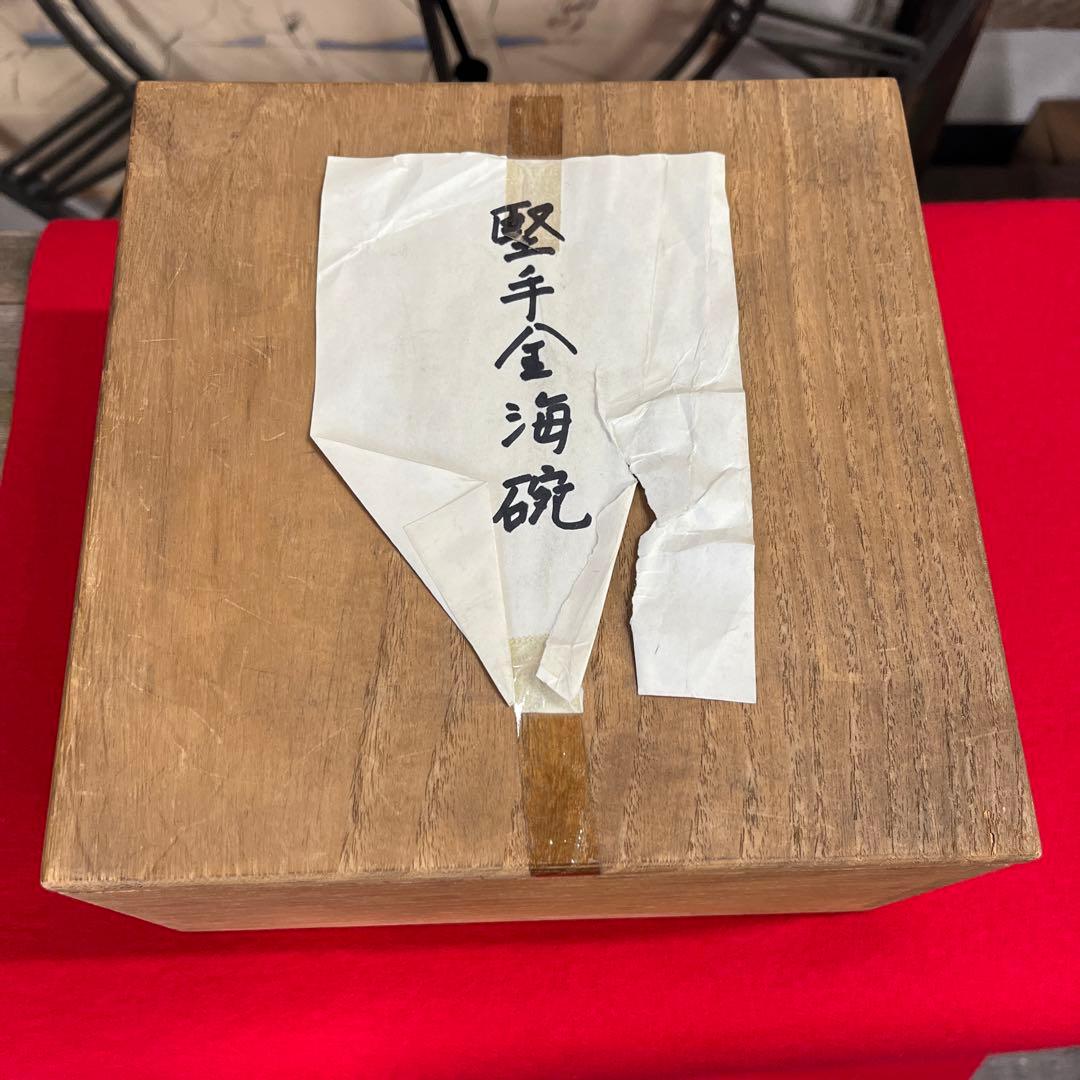 堅手金海碗